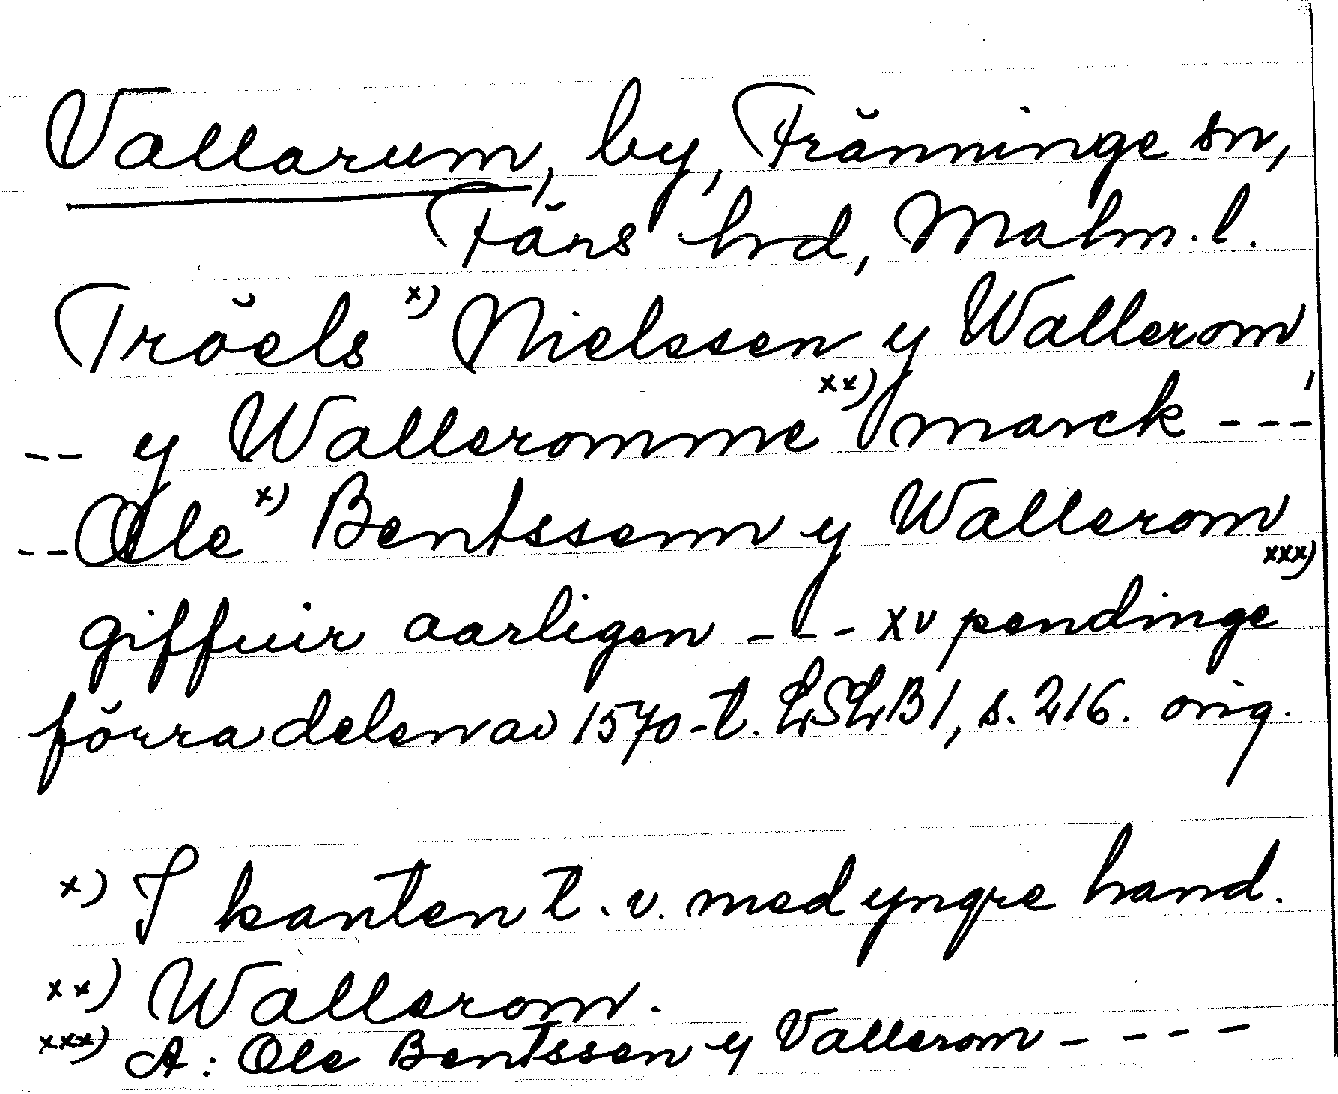 Vallarum, by, Fränninge sn,
Färs hrd, Malm. l.
Tröels x) Nielssen y Wallerom
-- y Walleromme xx) marck ---
-- Ole x) Bentssenn y Wallerom
giffuir aarligen --- xv pendinge xxx)
förra delen av 1570-t. LSLB 1, s. 216. orig.
x) I kanten t. v. med yngre hand.
xx) Wallerom.
xxx) A: Ole Bentssen y Vallerom ----